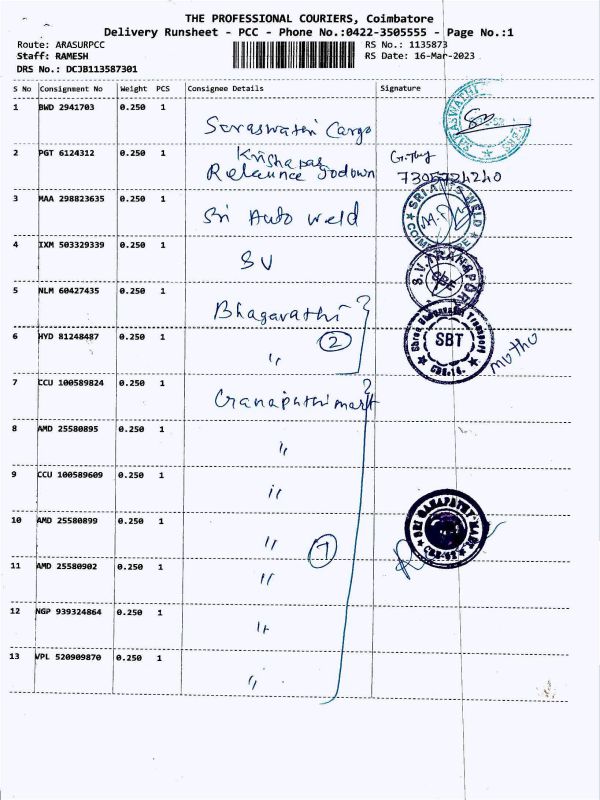 THE PROFESSIONAL COURIERS, Coimbatore
Delivery Runsheet - PCC - Phone No.:0422-3505555 - Page No.:1
Route: ARASURPCC RS No.: 1135873
Staff: RAMESH RS Date: 16-Mar-2023
DRS No.: DCJB113587301
S No Consignment No Weight PCS Consignee Details Signature
1 BWD 2941703 0.250 1
Saraswathi Cargo
2 PGT 6124312 0.250 1
Relaunce Godown 7305724240
3 MAA 298823635 0.250 1
Sri Auto weld
SRI AUTO WELD
4 IXM 503329339 0.250 1
SV
5 NLM 60427435 0.250 1
Bhagavathi
6 HYD 81248487 0.250 1
2
"
SBT
CBE-14.
muthu
7 CCU 100589824 0.250 1
Granapathi mart
8 AMD 25580895 0.250 1
"
9 CCU 100589609 0.250 1
"
10 AMD 25580899 0.250 1
" 7
SRI GANAPATHY MARK
11 AMD 25580902 0.250 1
"
12 NGP 939324864 0.250 1
"
13 VPL 520909870 0.250 1
"